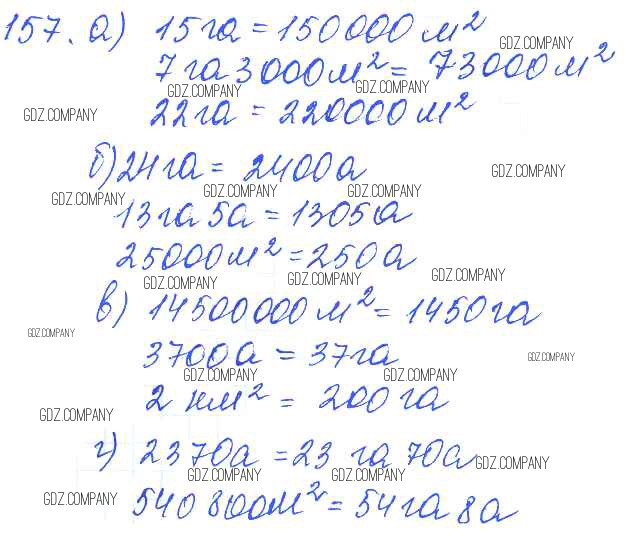 157. а) 15 га = 150000 м²
GDZ.COMPANY
7 га 3000 м² = 73000 м²
GDZ.COMPANY GDZ.COMPANY
22 га = 220000 м²
GDZ.COMPANY
б) 24 га = 2400 а
GDZ.COMPANY
GDZ.COMPANY GDZ.COMPANY GDZ.COMPANY
13 га 5 а = 1305 а
25000 м² = 250 а
GDZ.COMPANY GDZ.COMPANY GDZ.COMPANY
в) 14500000 м² = 1450 га
GDZ.COMPANY
3700 а = 37 га
GDZ.COMPANY
GDZ.COMPANY GDZ.COMPANY
2 км² = 200 га
GDZ.COMPANY
г) 2370 а = 23 га 70 а
GDZ.COMPANY
GDZ.COMPANY GDZ.COMPANY
540 800 м² = 54 га 8 а
GDZ.COMPANY